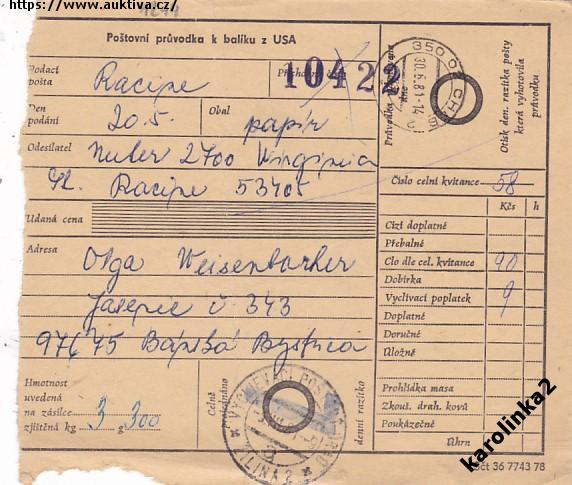 https://www.auktiva.cz/
Poštovní průvodka k balíku z USA
Podací pošta Racine
10422
Den podání 20.5. Obal papír
Odesílatel Huber 2700 Wirginia
St. Racine 53405
Udaná cena
Adresa Olga Weisenbacher
Jasenie č 343
97675 Báňská Bystrica
Hmotnost
uvedená
na zásilce
zjištěná kg 3 g 300
Celně projednáno
denní razítko
ŽILINA 2
350 02 CHEB 2
30.6.81-14
Otisk den. razítka pošty
která vyhotovila
průvodku
Číslo celní kvitance 58
Kčs h
Cizí doplatné
Přebalné
Clo dle cel. kvitance 40
Dobírka
Vyclívací poplatek 9
Doplatné
Doručné
Úložné
Prohlídka masa
Zkouš. drah. kovů
Poukázečné
Úhrn
Sčt 36 7743 78
karolinka2